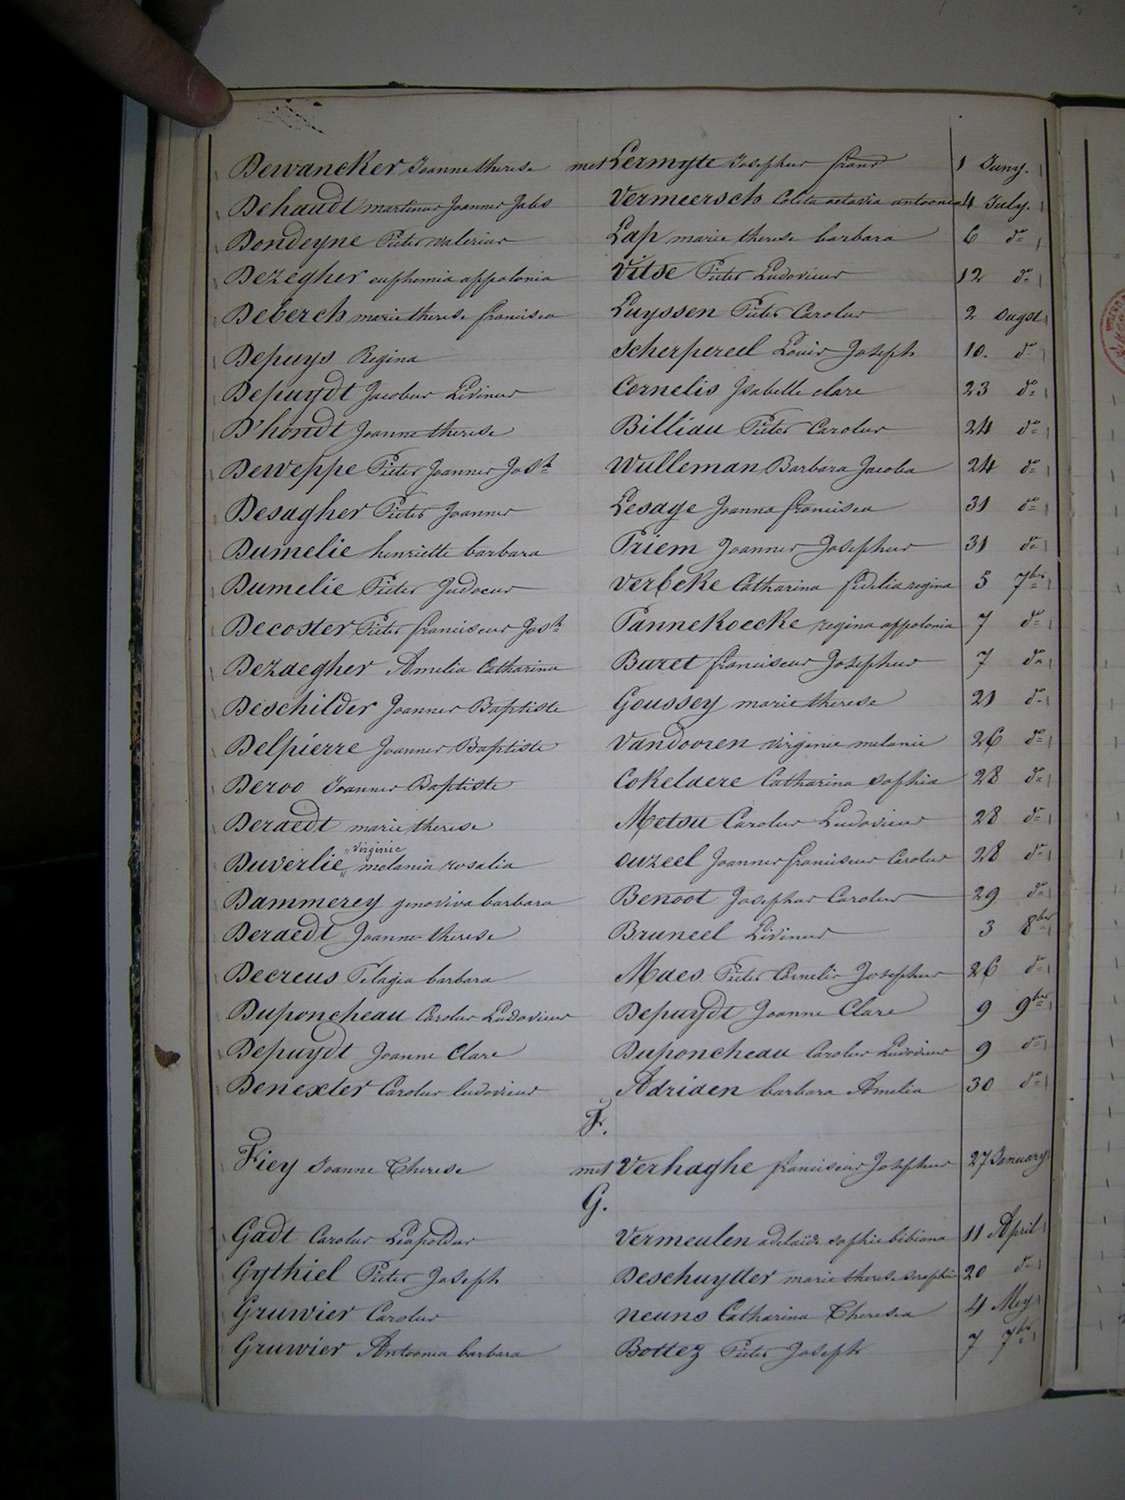 Dewancker Joanne therese met Lermyte Josephus frans 1 Juny.
Dehaudt martinus Joannes Jabs Vermeersch Coleta octavia antoonia 4 July.
Dondeyne Pieter valerius Lap marie therese barbara 6 do
Dezegher euphemia appolonia Vitse Pieter Ludovicus 12 do
Deberch marie therese francisca Luyssen Pieter Carolus 2 Augst
Depuys Regina Scherpereel Louis Joseph 10. do
Depuydt Jacobus Livinus Cornelis Isabelle clare 23 do
D'hondt Joanne therese Billiau Pieter Carolus 24 do
Deweppe Pieter Joannes Josh Wulleman Barbara Jacoba 24 do
Desagher Pieter Joannes Lesage Joanna francisca 31 do
Dumelie henriette barbara Priem Joannes Josephus 31 do
Dumelie Pieter Judocus Verbeke Catharina fidelia regina 5 7bre
Decoster Pieter franciscus Josh Pannekoecke regina appolonia 7 do
Dezaegher Amelia Catharina Buret franciscus Josephus 7 do
Deschilder Joannes Baptiste Goussey marie therese 21 do
Delpierre Joannes Baptiste Vandooren virginie melanie 26 do
Deroo Joannes Baptiste Cokelaere Catharina sophia 28 do
Deraedt marie therese Metsu Carolus Ludovicus 28 do
Duverlie " virginie " melania rosalia auzeel Joannes franciscus Carolus 28 do
Dammerey genoviva barbara Benoot Josephus Carolus 29 do
Deraedt Joanne therese Bruneel Livinus 3 8bre
Decreus Pelagia barbara Maes Pieter Cornelis Josephus 26 do
Duponcheau Carolus Ludovicus Depuydt Joanne Clare 9 9bre
Depuydt Joanne Clare Duponcheau Carolus Ludovicus 9 do
Denexter Carolus ludovicus Adriaen barbara Amelia 30 do
F.
Fiey Joanne Therese met Verhaghe franciscus Josephus 27 January
G.
Gadt Carolus Leopoldus Vermeulen adelaïde sophie bibiana 11 April
Gythiel Pieter Joseph Deschuytter marie therese seraphine 20 do
Gruwier Carolus neuns Catharina Theresia 4 Mey
Gruwier Antoonia barbara Bottez Pieter Joseph 7 7bre